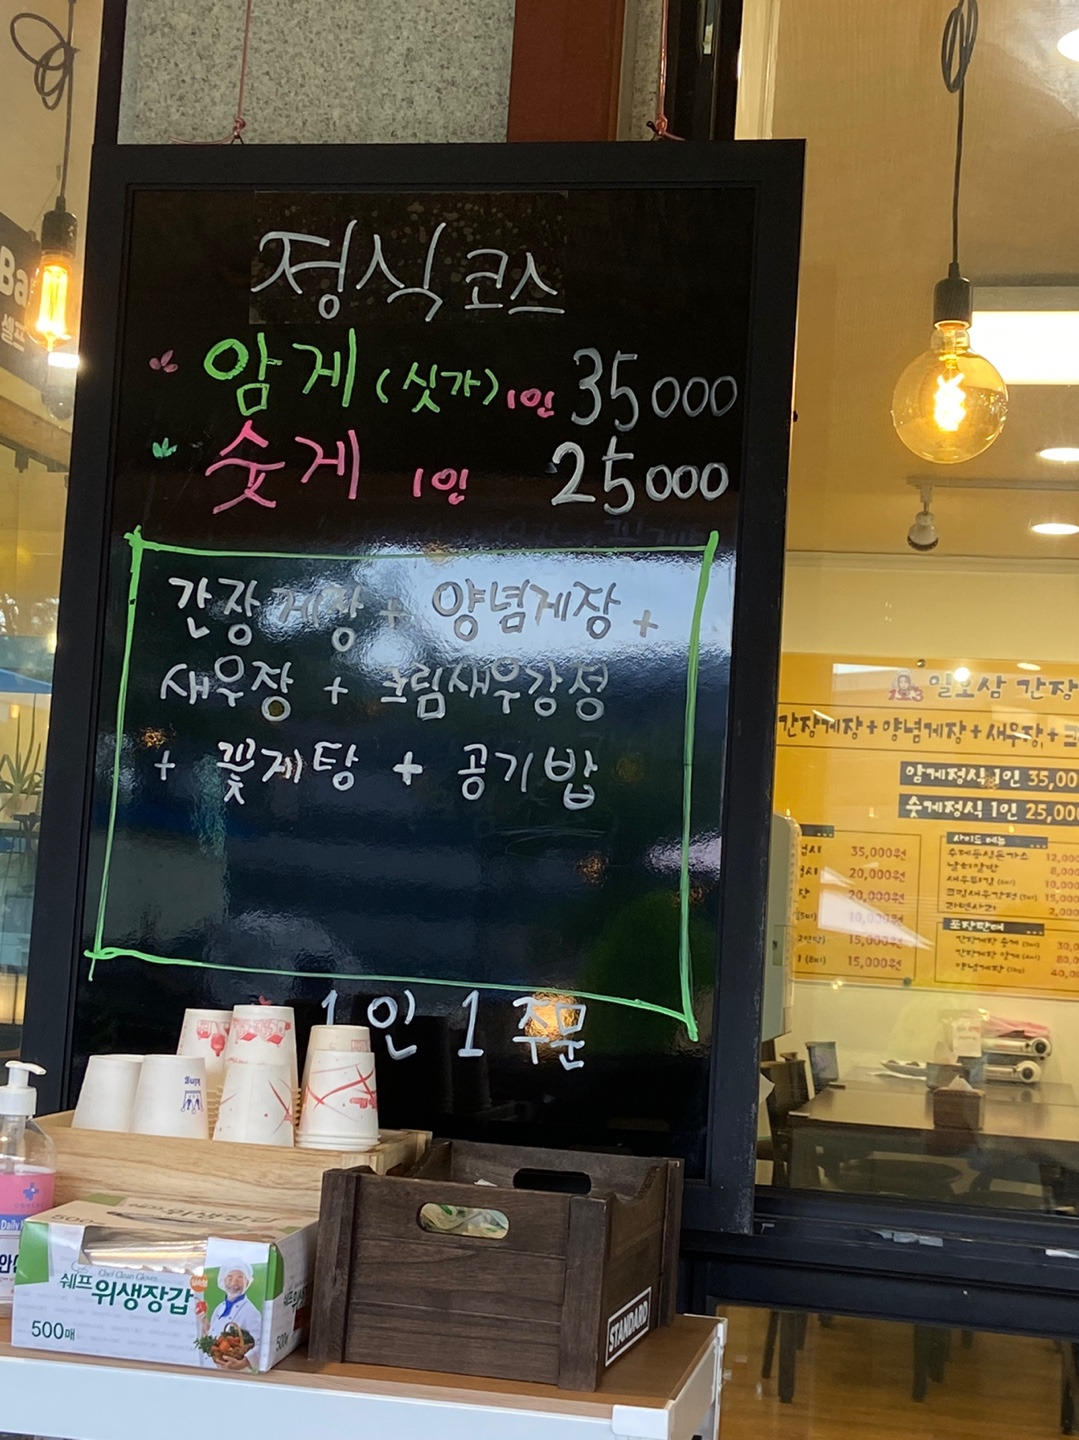 정식코스
암게 (싯가) 1인 35000
숫게 1인 25000
간장게장 + 양념게장 +
새우장 + 크림새우강정
+ 꽃게탕 + 공기밥
1인 1주문
Ba
셀프
일오삼 간장
간장게장 + 양념게장 + 새우장 +
암게정식 1인 35,00
숫게정식 1인 25,00
35,000원
20,000원
20,000원
10,000원
15,000원
15,000원
사이드 메뉴
수제등심돈가스 12,00
날치알밥 8,00
새우튀김 10,00
크림새우강정 15,00
라면사리 2,000
포장판매
간장게장 숫게 30,0
간장게장 암게 80,0
양념게장 40,0
Chef Clean Gloves
쉐프 위생장갑
500매
STANDARD
Daily